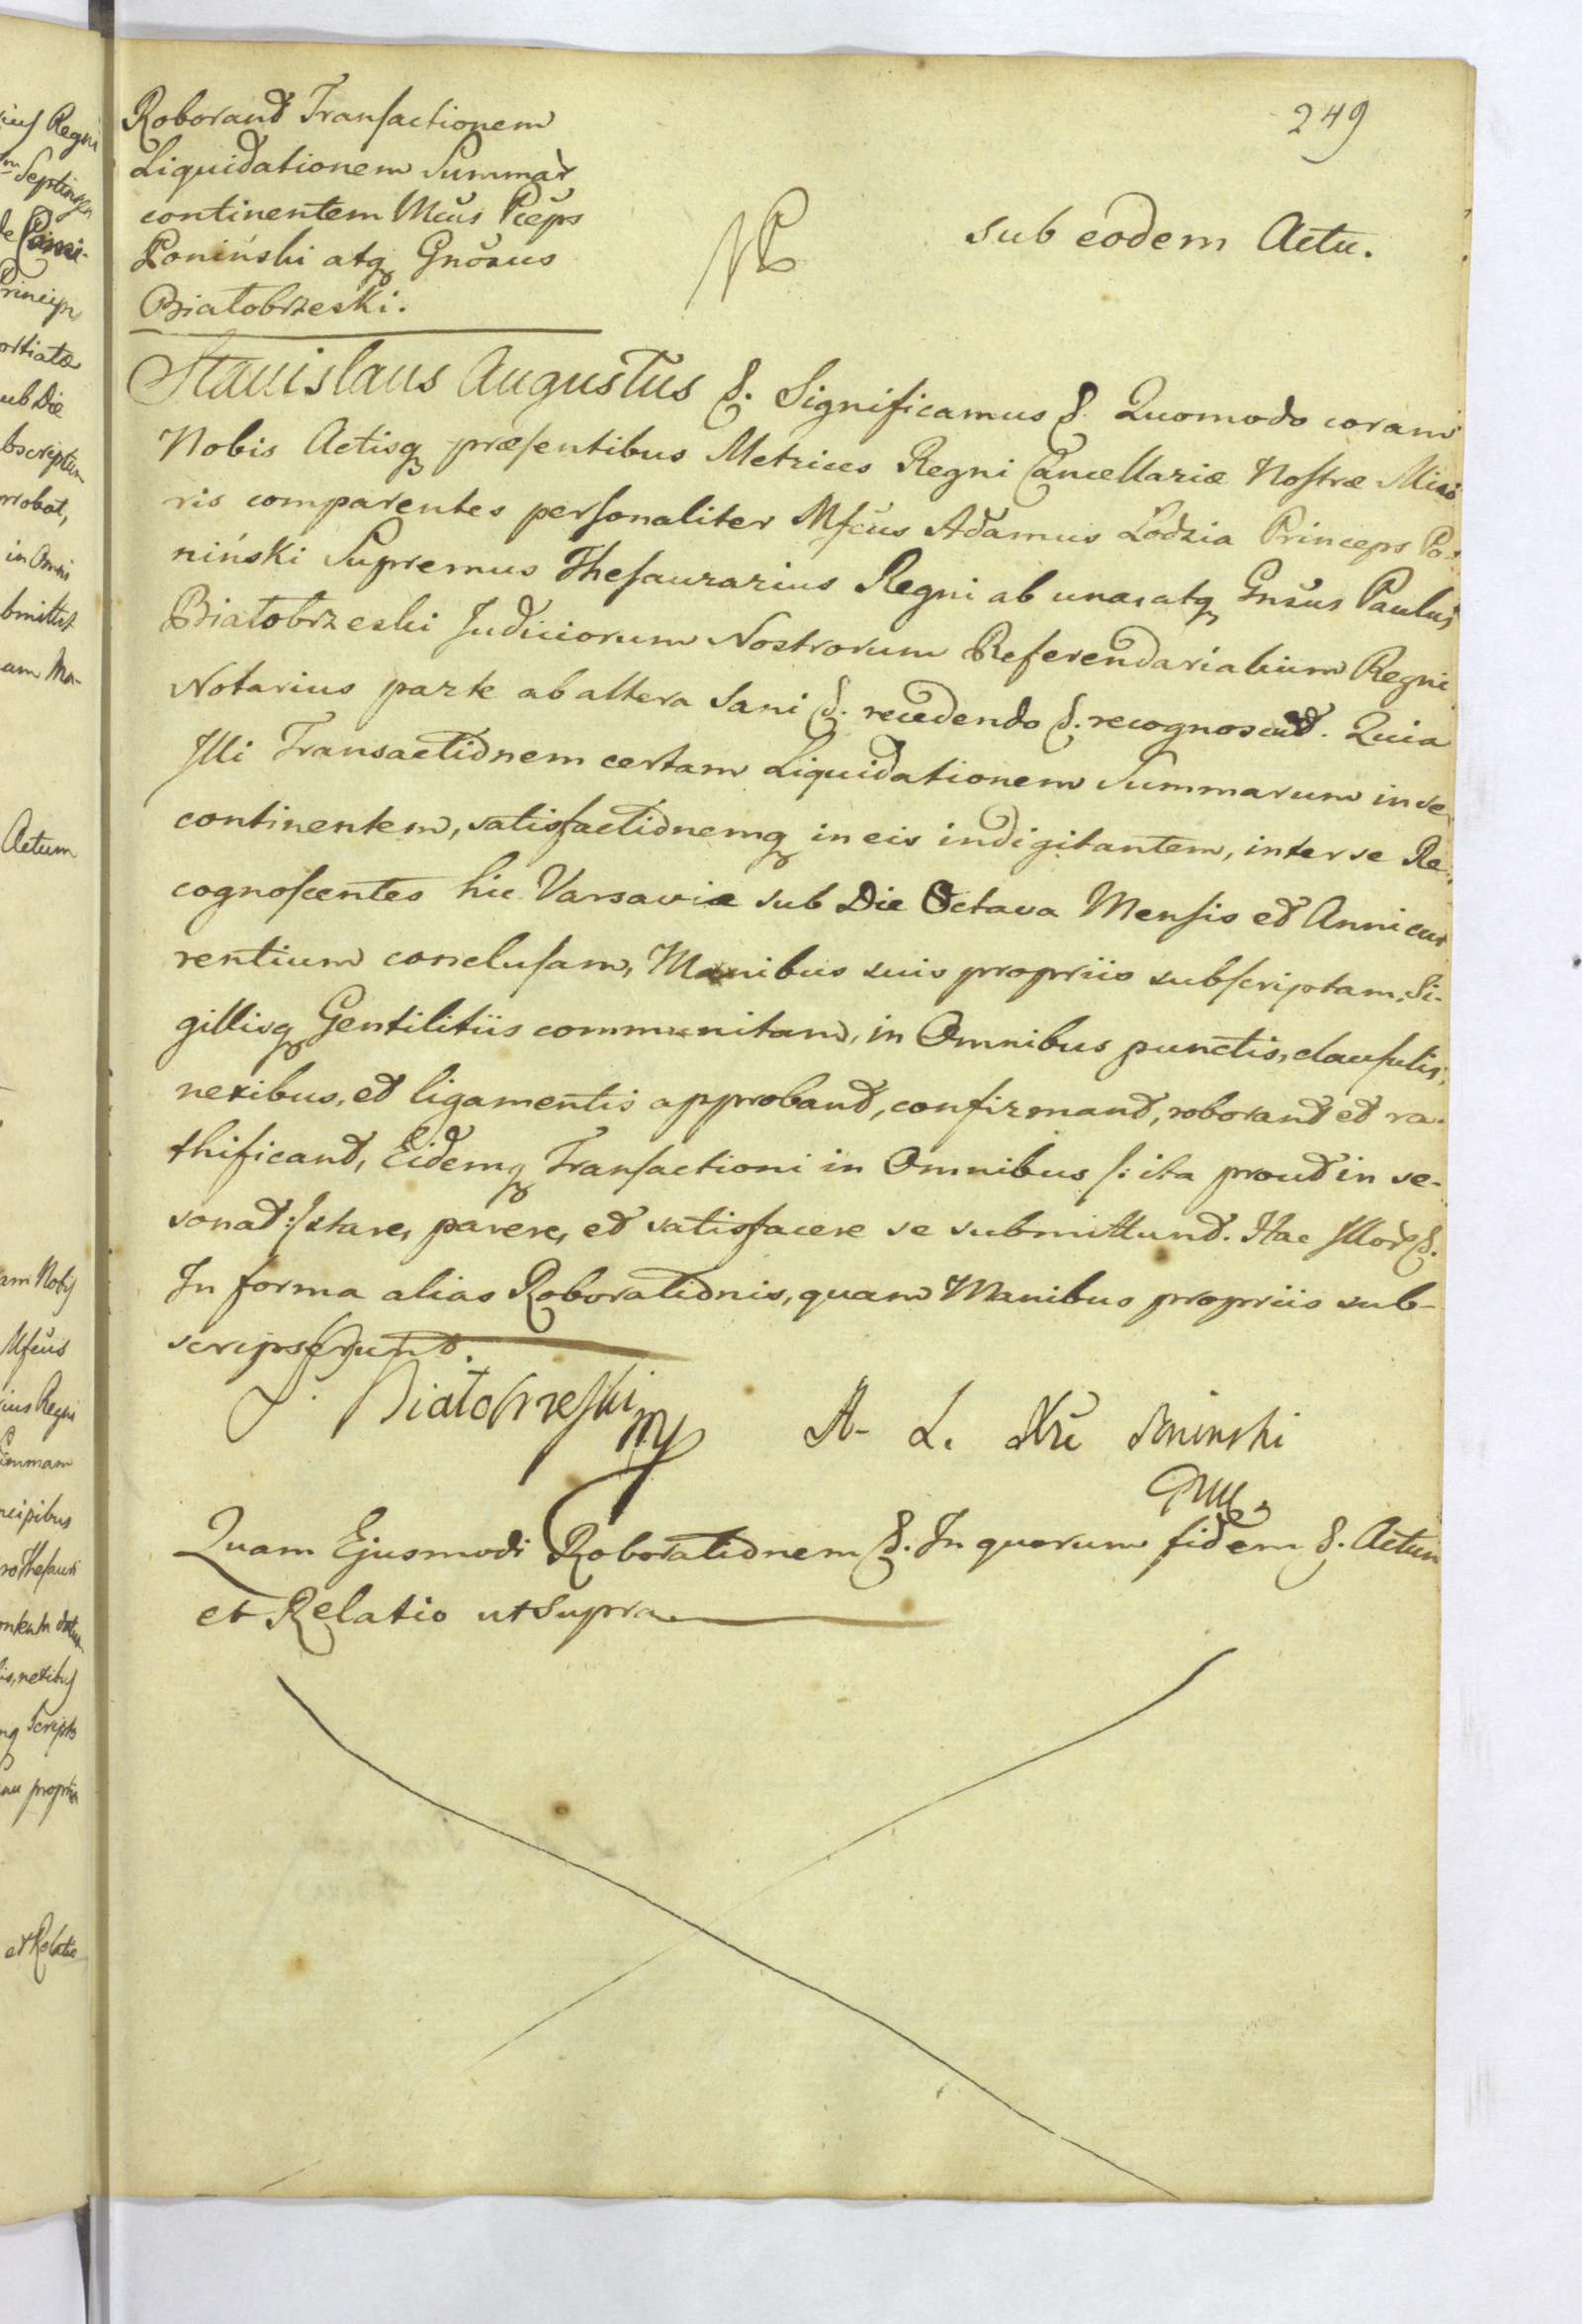 249
Roborand Transactionem
Liquidationem Summar
continentem Mcus Pceps
Poniński atq Gnosus
Białobrzeski.
sub eodem Actu.
Stanislaus Augustus &. Significamus &. Quomodo coram
Nobis Actisq præsentibus Metrices Regni Cancellariæ Nostræ Mino
ris comparentes personaliter Mfcus Adamus Lodzia Princeps Po-
niński Supremus Thesaurarius Regni ab una, atq Gnsus Paulus
Białobrzeski Judiciorum Nostrorum Referendarialium Regni
Notarius parte ab altera Sani &. recedendo &. recognoscud. Quia
Illi Transactionem certam Liquidationem Summarum in se
continentem, satisfactionemq in eis indigitantem, inter se Re-
cognoscentes hic Varsaviæ sub Die Octava Mensis et Anni cur
rentium conclusam, Manibus suis propriis subscriptam, Si-
gillisq Gentilitiis communitam, in Omnibus punctis, clausulis,
nexibus, et ligamentis approband, confirmand, roborand et ra-
thificand, Eidemq Transactioni in Omnibus /: ita prout in se-
sonat :/ stare, parere, et satisfacere se submittund. Hac Mod &.
In forma alias Roborationis, quam Manibus propriis sub-
scripserunt.
P. Białobrzeski mp
A. L. Xże Poninski
Quam Ejusmodi Roborationem &. In quorum fidem &. Actum
et Relatio ut Supra.
Actum
et Relatio